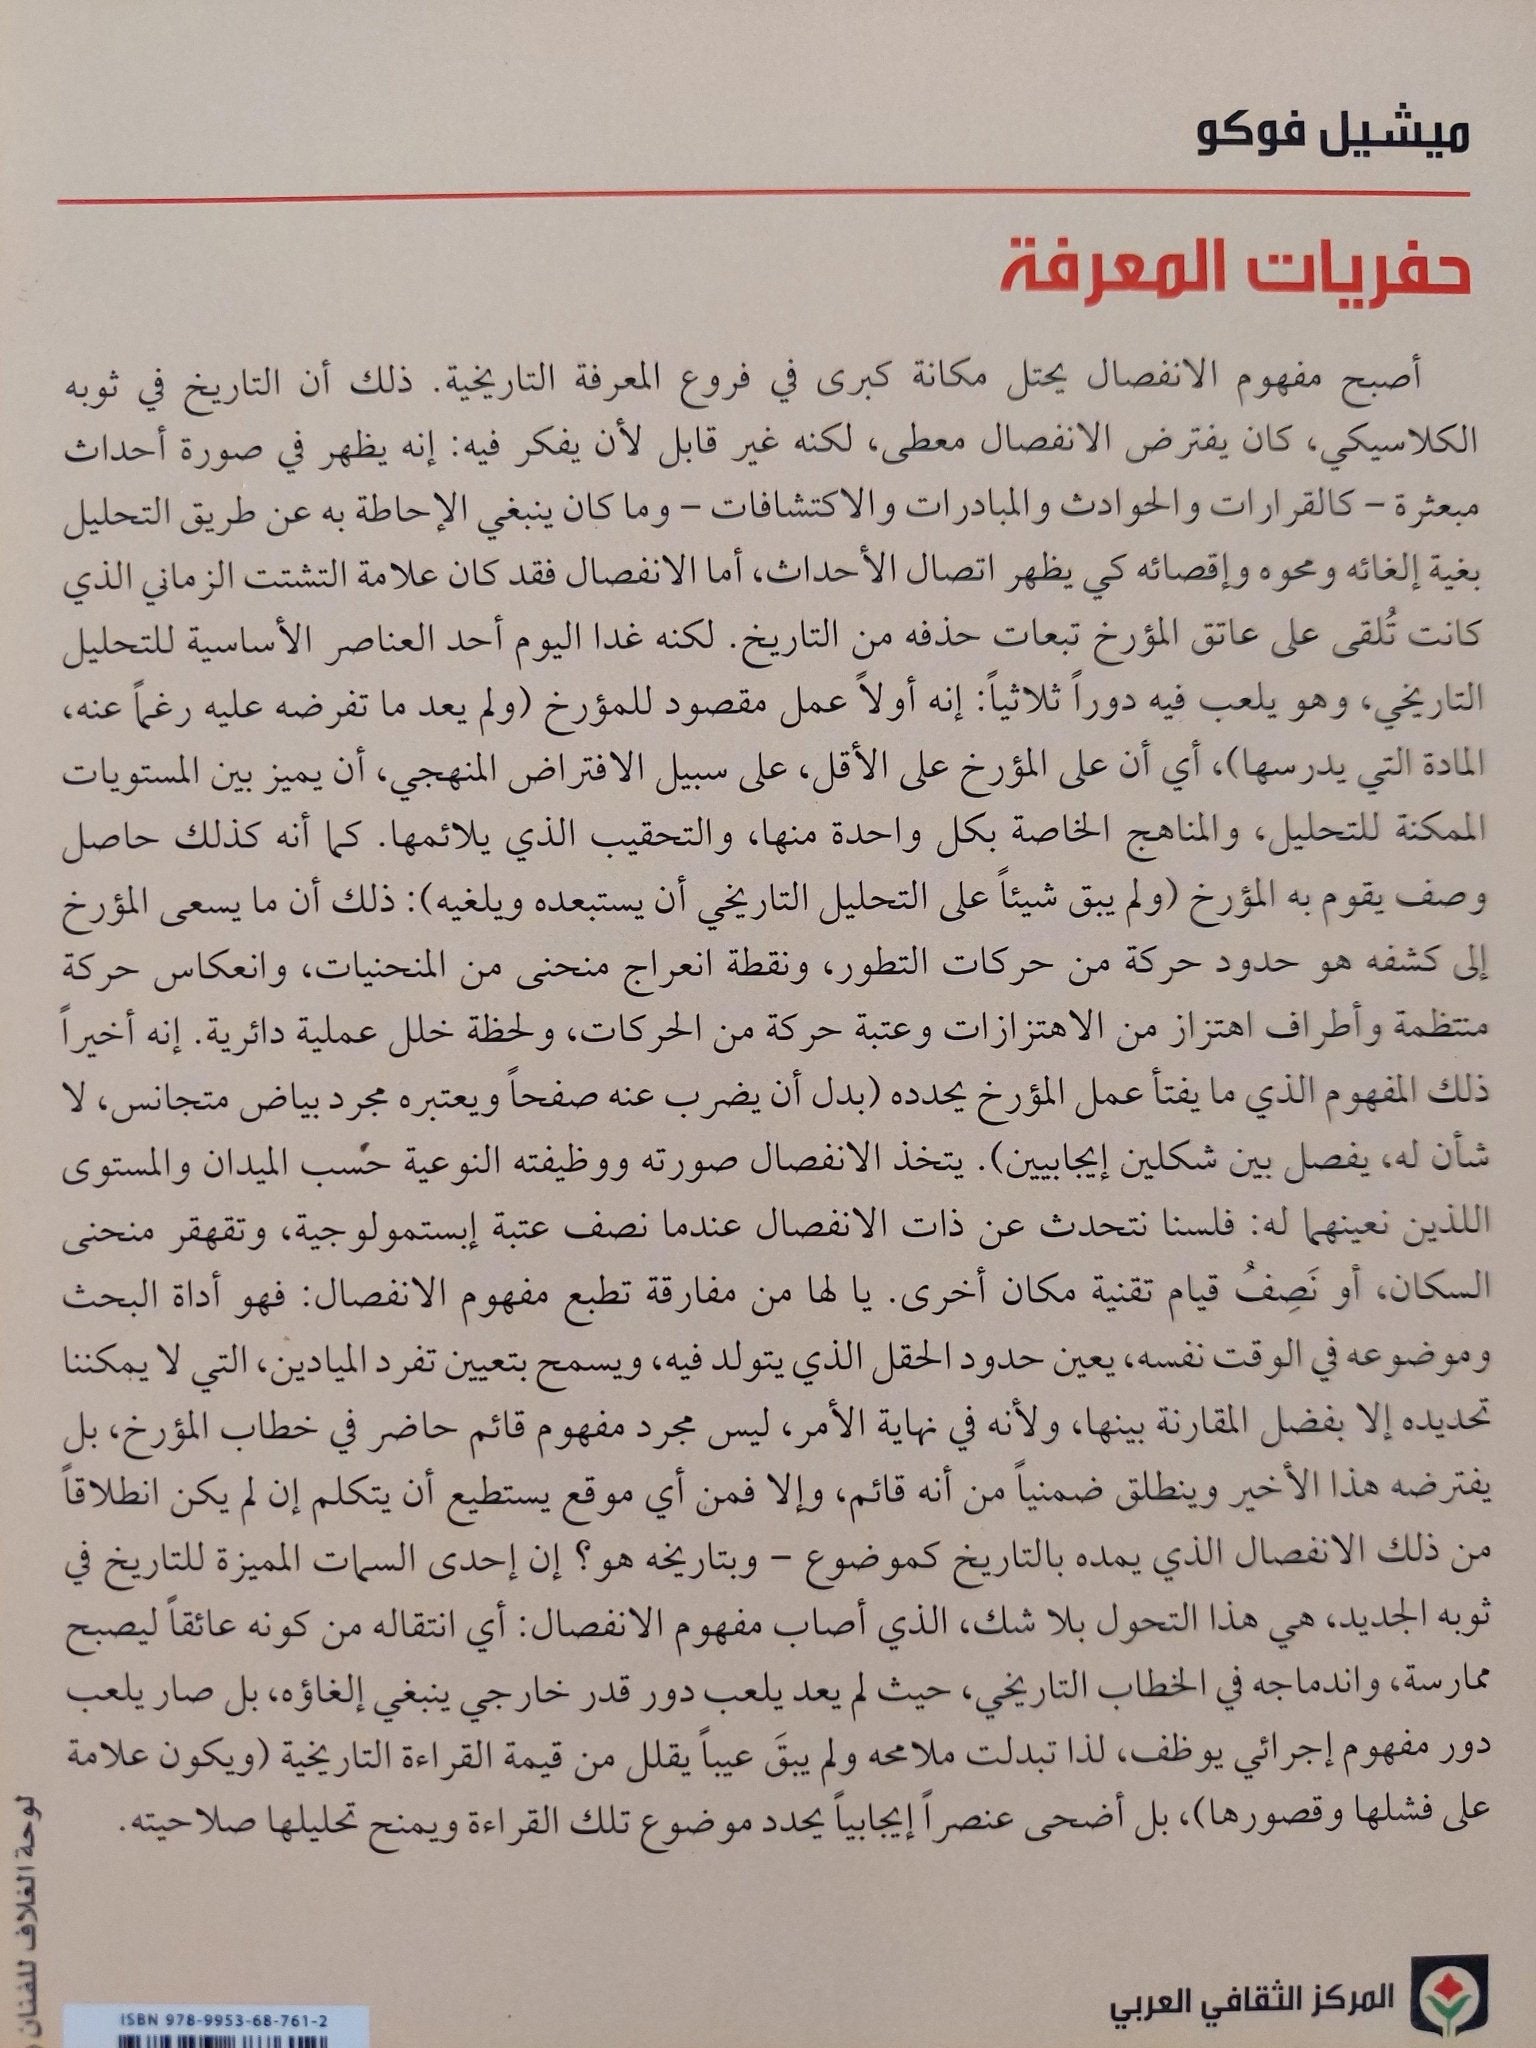 ميشيل فوكو
حفريات المعرفة
أصبح مفهوم الانفصال يحتل مكانة كبرى في فروع المعرفة التاريخية. ذلك أن التاريخ في ثوبه
الكلاسيكي، كان يفترض الانفصال معطى، لكنه غير قابل لأن يفكر فيه: إنه يظهر في صورة أحداث
مبعثرة – كالقرارات والحوادث والمبادرات والاكتشافات – وما كان ينبغي الإحاطة به عن طريق التحليل
بغية إلغائه ومحوه وإقصائه كي يظهر اتصال الأحداث، أما الانفصال فقد كان علامة التشتت الزماني الذي
كانت تُلقى على عاتق المؤرخ تبعات حذفه من التاريخ. لكنه غدا اليوم أحد العناصر الأساسية للتحليل
التاريخي، وهو يلعب فيه دوراً ثلاثياً: إنه أولاً عمل مقصود للمؤرخ (ولم يعد ما تفرضه عليه رغماً عنه،
المادة التي يدرسها)، أي أن على المؤرخ على الأقل، على سبيل الافتراض المنهجي، أن يميز بين المستويات
الممكنة للتحليل، والمناهج الخاصة بكل واحدة منها، والتحقيب الذي يلائمها. كما أنه كذلك حاصل
وصف يقوم به المؤرخ (ولم يبق شيئاً على التحليل التاريخي أن يستبعده ويلغيه): ذلك أن ما يسعى المؤرخ
إلى كشفه هو حدود حركة من حركات التطور، ونقطة انعراج منحنى من المنحنيات، وانعكاس حركة
منتظمة وأطراف اهتزاز من الاهتزازات وعتبة حركة من الحركات، ولحظة خلل عملية دائرية. إنه أخيراً
ذلك المفهوم الذي ما يفتأ عمل المؤرخ يحدده (بدل أن يضرب عنه صفحاً ويعتبره مجرد بياض متجانس، لا
شأن له، يفصل بين شكلين إيجابيين). يتخذ الانفصال صورته ووظيفته النوعية حسب الميدان والمستوى
اللذين نعينهما له: فلسنا نتحدث عن ذات الانفصال عندما نصف عتبة إبستمولوجية، وتقهقر منحنى
السكان، أو نَصِفُ قيام تقنية مكان أخرى. يا لها من مفارقة تطبع مفهوم الانفصال: فهو أداة البحث
وموضوعه في الوقت نفسه، يعين حدود الحقل الذي يتولد فيه، ويسمح بتعيين تفرد الميادين، التي لا يمكننا
تحديده إلا بفضل المقارنة بينها، ولأنه في نهاية الأمر، ليس مجرد مفهوم قائم حاضر في خطاب المؤرخ، بل
يفترضه هذا الأخير وينطلق ضمنياً من أنه قائم، وإلا فمن أي موقع يستطيع أن يتكلم إن لم يكن انطلاقاً
من ذلك الانفصال الذي يمده بالتاريخ كموضوع – وبتاريخه هو؟ إن إحدى السمات المميزة للتاريخ في
ثوبه الجديد، هي هذا التحول بلا شك، الذي أصاب مفهوم الانفصال: أي انتقاله من كونه عائقاً ليصبح
ممارسة، واندماجه في الخطاب التاريخي، حيث لم يعد يلعب دور قدر خارجي ينبغي إلغاؤه، بل صار يلعب
دور مفهوم إجرائي يوظف، لذا تبدلت ملامحه ولم يبقَ عيباً يقلل من قيمة القراءة التاريخية (ويكون علامة
على فشلها وقصورها)، بل أضحى عنصراً إيجابياً يحدد موضوع تلك القراءة ويمنح تحليلها صلاحيته.
المركز الثقافي العربي
ISBN 978-9953-68-761-2
لوحة الغلاف للفنان